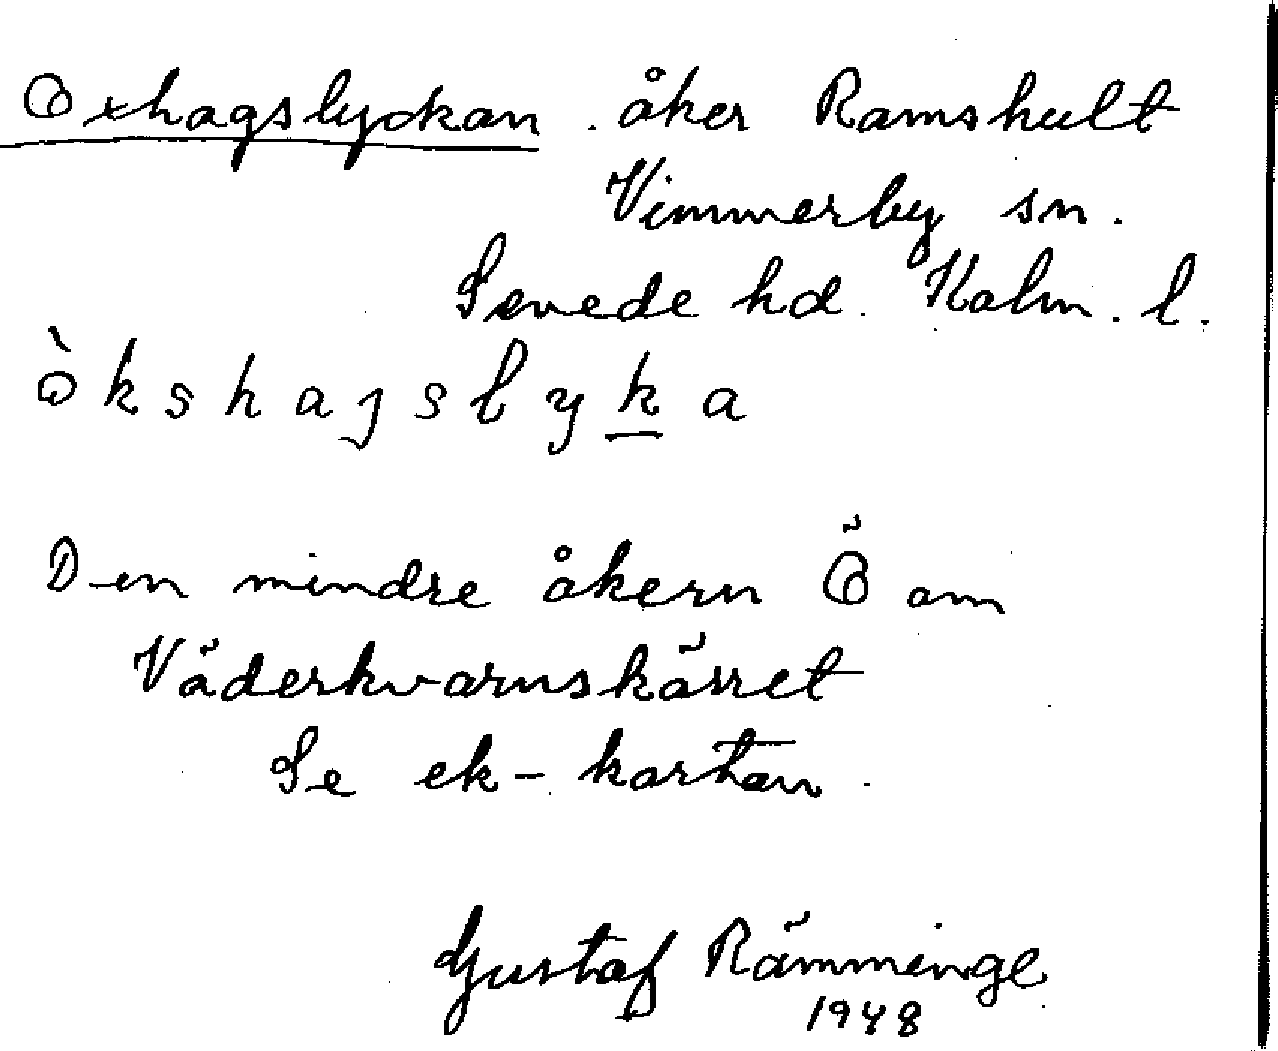 Oxhagslyckan. åker Ramshult
Vimmerby sn.
Sevede hd. Kalm. l.
òkshagslyka
Den mindre åkern Ö om
Väderkvarnskärret
Se ek-kartan.
Gustaf Rämminge
1948